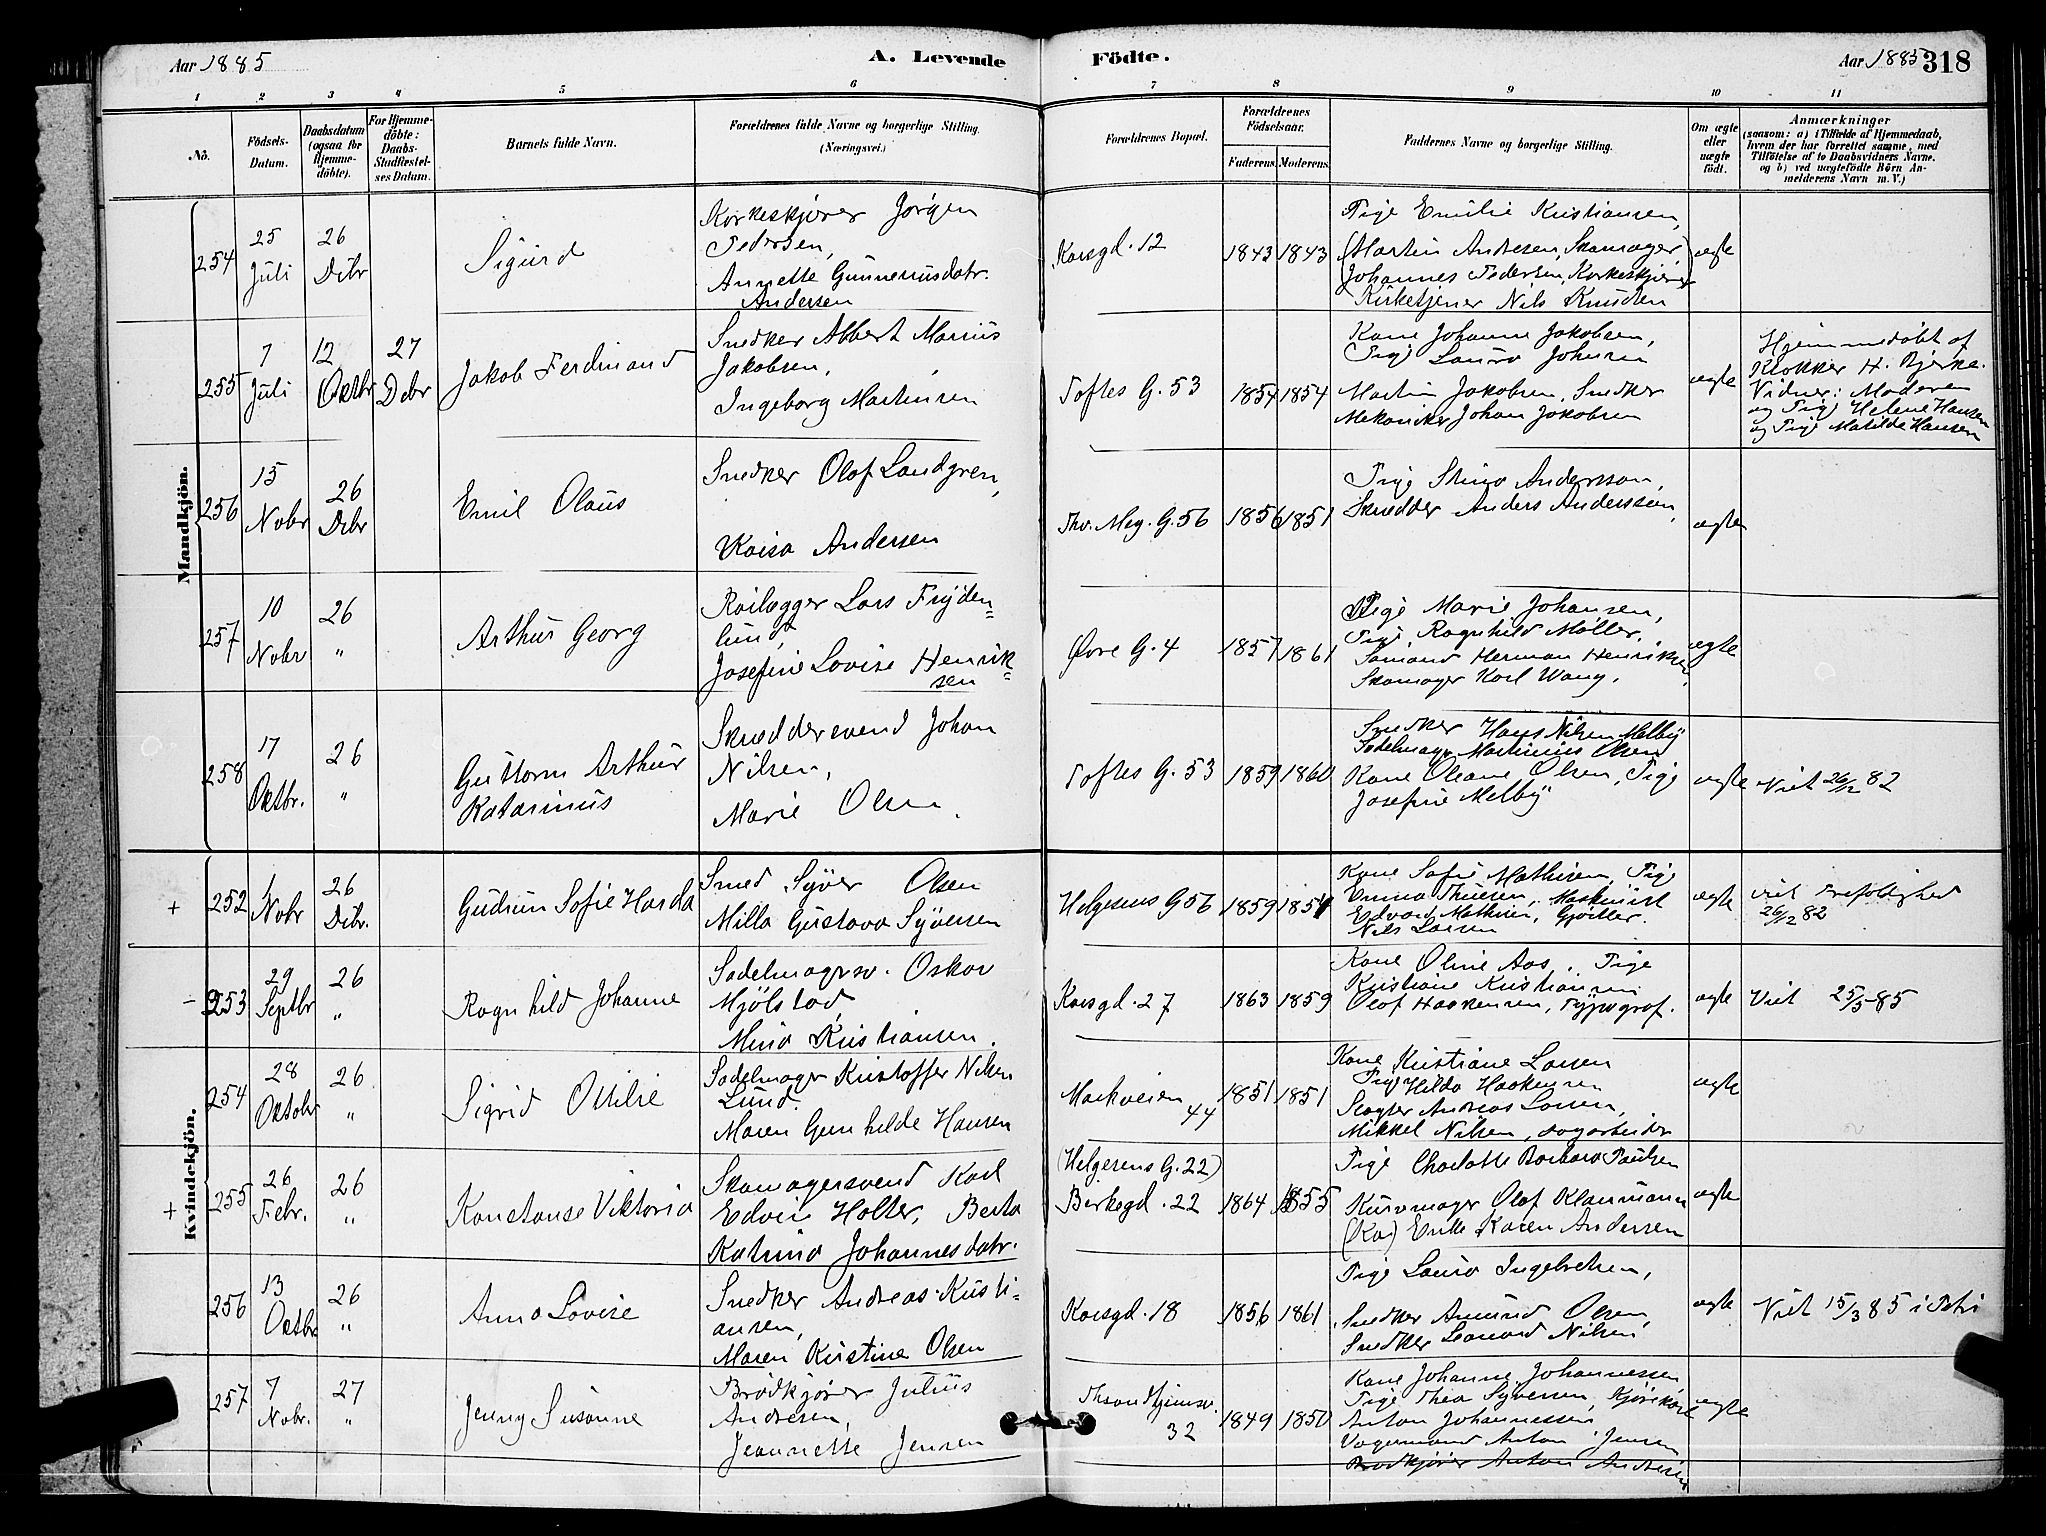 Aar 1885
A. Levende
Födte.
Aar 1885
318
1 2 3 4 5 6 7 8 9 10 11
No.
Födsels-
Datum.
Daabsdatum
(ogsaa for
Hjemme-
döbte).
For Hjemme-
döbte:
Daabs-
Stadfæstel-
ses Datum.
Barnets fulde Navn.
Forældrenes fulde Navne og borgerlige Stilling.
(Næringsvei.)
Forældrenes Bopæl.
Forældrenes
Födselsaar.
Faderens. Moderens.
Faddernes Navne og borgerlige Stilling.
Om ægte
eller
uægte
födt.
Anmærkninger
(saasom: a) i Tilfælde af Hjemmedaab,
hvem der har forrettet samme, med
Tilföielse af to Daabsvidners Navne.
og b) ved uægtefödte Börn An-
melderens Navn m.V.)
Mandkjön.
254
25
Juli
26
Debr
Sigurd
Korkeskjærer Jørgen
Pedersen,
Annette Gunneriusdatr.
Andersen
Korsgd. 12
1843 1843
Pige Emilie Kristiansen,
(Martin Andresen, Skomager)
Johannes Pedersen, Korkeskjærer
Kirketjener Nils Knudsen
ægte
255
7
Juli
12
Oktbr
27
Debr
Jakob Ferdinand
Snedker Albert Marius
Jakobsen,
Ingeborg Martinsen
Toftes G. 53
1854 1854
Kone Johanne Jakobsen,
Pige Laura Johnsen
Martin Jakobsen, Snedker
Mekaniker Johan Jakobsen
ægte
Hjemmedøbt af
Klokker H. Bjerke.
Vidner: Moderen
og Pige Helene Hansen
og Pige Matilde Hansen
256
15
Nobr
26
Debr
Emil Olaus
Snedker Olof Landgren,
Kaisa Andersen
Thv. Mey. G. 56
1856 1851
Pige Stina Andersson,
Skrædder Anders Andersson,
ægte
257
10
Nobr
26
"
Arthur Georg
Railægger Lars Fryden=
lund,
Josefine Lovise Henrik=
sen
Øvre G. 4
1857 1861
Pige Marie Johansen,
Pige Ragnhild Møller,
Sømand Herman Henriksen,
Skomager Karl Wang.
ægte
258
17
Oktbr.
26
"
Guttorm Arthur
Katarinus
Skræddersvend Johan
Nilsen,
Marie Olsen
Toftes G. 53
1859 1860
Snedker Hans Nilsen Melby
Sadelmager Martinius Olsen
Kone Oleane Olsen, Pige
Josefine Melby
ægte
Viet 26/12 82
Kvindekjön.
+ 252
1
Nobr
26
Debr.
Gudrun Sofie Harda
Smed Syver Olsen
Milla Gustava Syversen
Helgesens G 56
1859 1854
Kone Sofie Mathisen, Pige
Emma Thuesen, Maskinist
Edvard Mathisen, Gjørtler
Nils Larsen
ægte
viet Trefoldighed
26/12 82
- 253
29
Septbr
26
"
Ragnhild Johanne
Sadelmagersv. Oskar
Mjølstad,
Mina Kristiansen.
Korsgd. 27
1863 1859
Kone Oline Aas, Pige
Kristiane Kristiansen
Olof Haakensen, Typograf.
ægte
Viet 25/5-85
254
28
Oktobr
26
"
Sigrid Otilie
Sadelmager Kristoffer Nilsen
Lund.
Maren Gunhilde Hansen
Markveien
44
1851 1851
Kone Kristiane Larsen
Pige Hilda Haakensen
Slagter Andreas Larsen,
Mikkel Nilsen, dagarbeider
ægte
+ 255
26
Febr.
26
"
Konstanse Viktoria
Skomagersvend Karl
Edvin Holter, Berta
Katrina Johannesdatr.
(Helgesens G. 22)
Birkegd. 22
1864 1855
Pige Charlotte Barbara Paulsen
Kurvmager Olof Klanmann
(Kas) Enke Karen Andersen
ægte
256
13
Oktbr
26
"
Anna Lovise
Snedker Andreas Kristi-
ansen,
Maren Kristine Olsen
Korsgd. 18
1856 1861
Pige Laura Ingebretsen,
Snedker Amund Olsen,
Snedker Leonard Nilsen
ægte
Viet 15/3 85 i Petri
257
7
Nobr.
27
"
Jenny Susanne
Brødkjører Julius
Andresen,
Jeannette Jensen
Throndhjemsv.
32
1849 1850
Kone Johanne Johannessen
Pige Thea Syversen, Kjørekarl
Anton Johannessen
Vognmand Anton Jensen
Brødkjører Anton Andresen
ægte